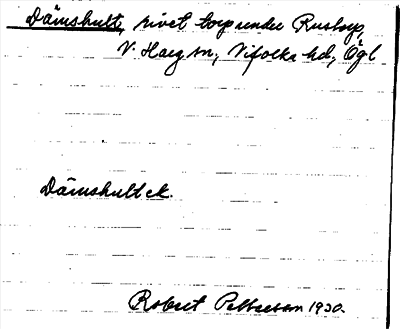 Dämshult, rivet torp under Rustorp,
V. Harg sn, Vifolka hd, Ögl
Dämshult ck.
Robert Pettersson 1930.